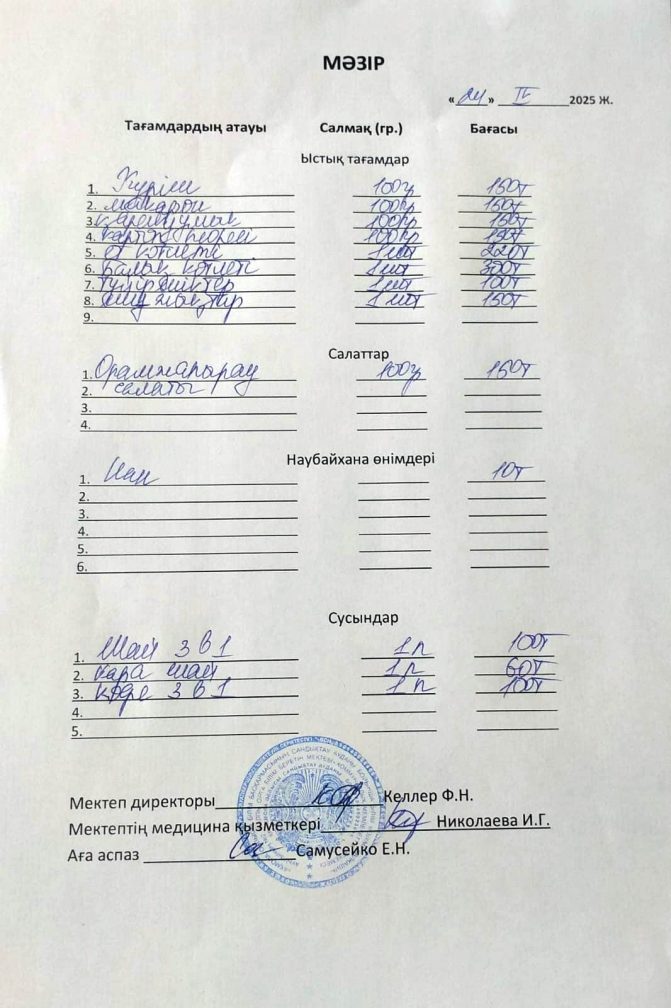 МӘЗІР
«24» IV 2025 Ж.
Тағамдардың атауы Салмақ (гр.) Бағасы
Ыстық тағамдар
1. Күріш 100гр 150т
2. макарон 100гр 150т
3. қарақұмық 100гр 150т
4. картоп пюресі 100гр
5. ет котлеті 1шт 220т
6. балық котлеті 1шт 300т
7. 1шт 100т
8. 1шт 150т
9.
Салаттар
1. Орамжапырақ 100гр 150т
2. салаты
3.
4.
Наубайхана өнімдері
1. Нан 10т
2.
3.
4.
5.
6.
Сусындар
1. Шай 3 в 1 1п 100т
2. қара шай 1п 60т
3. кофе 3 в 1 1п 100т
4.
5.
Мектеп директоры Келлер Ф.Н.
Мектептің медицина қызметкері Николаева И.Г.
Аға аспаз Самусейко Е.Н.